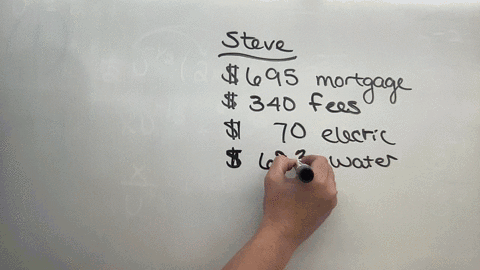 Steve
$695 mortgage
$ 340 fees
$ 70 electric
$ water